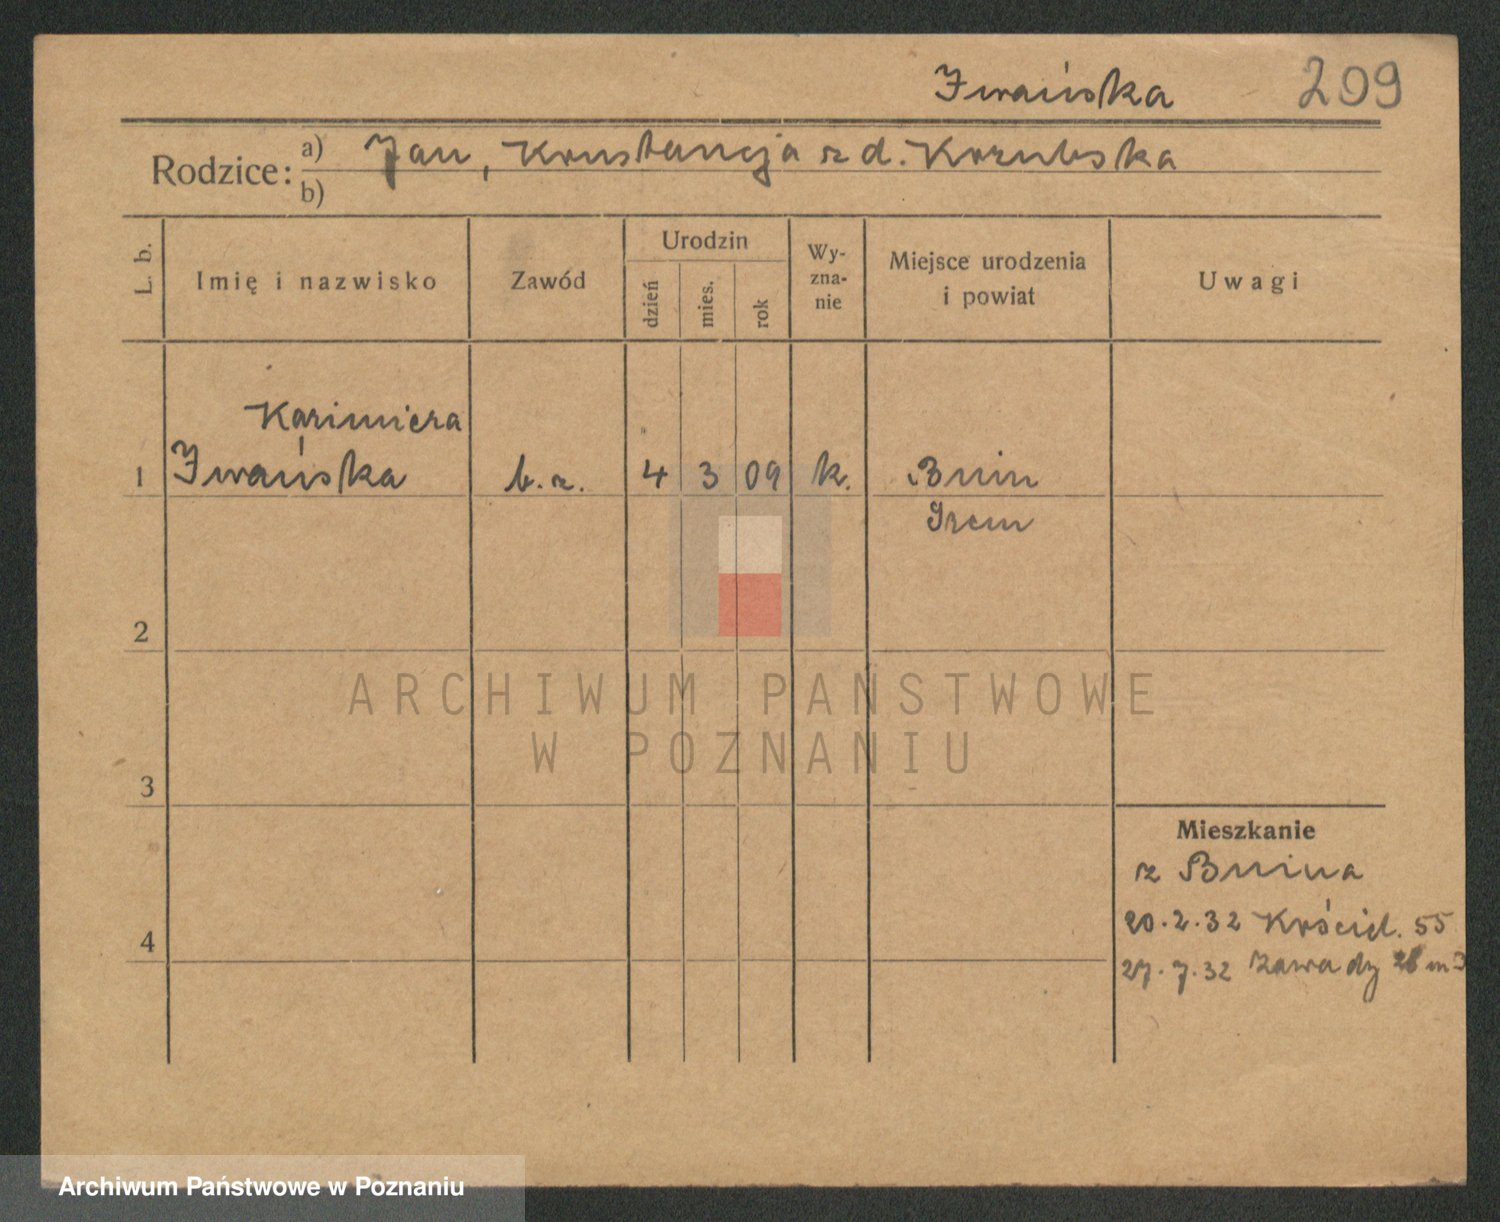 Iwańska 209
Rodzice: a) Jan, Konstancja z d.
b)
L. b. Imię i nazwisko Zawód Urodzin dzień mies. rok Wy-zna-nie Miejsce urodzenia i powiat Uwagi
Kazimiera
1 Iwańska b. z. 4 3 09 k. Bnin
Śrem
2
ARCHIWUM PAŃSTWOWE
W POZNANIU
3
Mieszkanie
z Bnina
20.2.32 Kościel. 55
4
27.7.32 Zawady
Archiwum Państwowe w Poznaniu